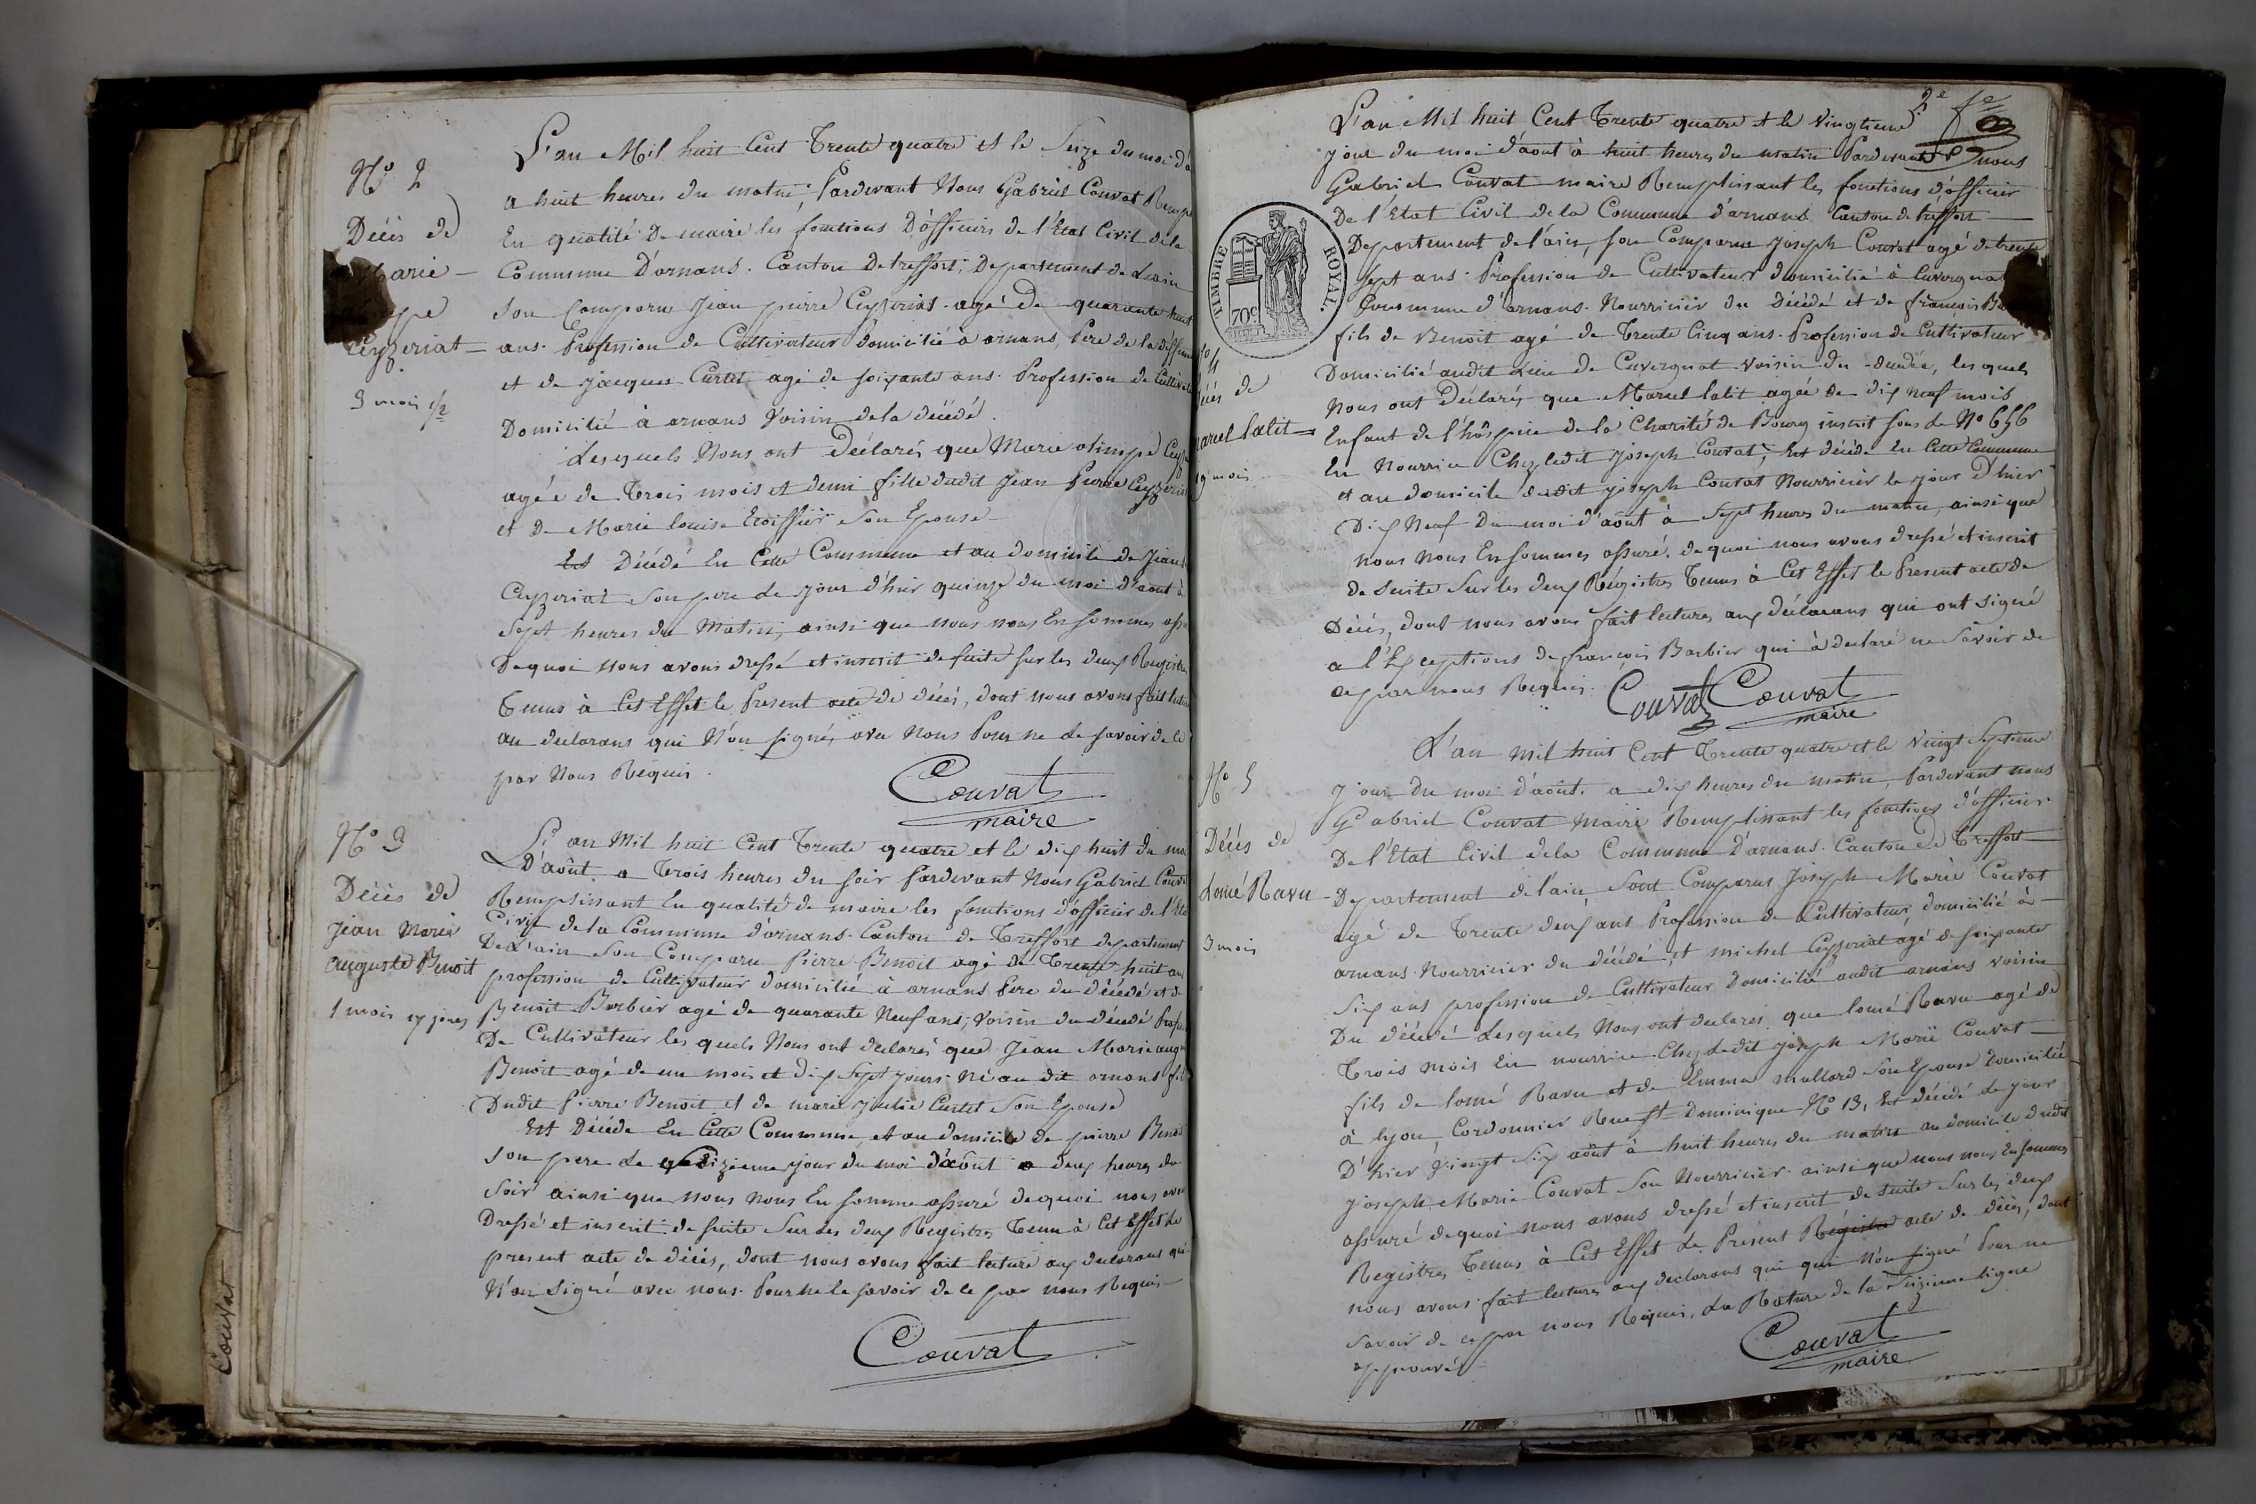 L'an Mil huit Cent Trente quatre et le Seize du moi d'a
a huit heures du matin; Pardevant Nous Gabriel Couvat Remp
En qualité De maire les fonctions D'officiers de l'Etat Civil de la
Commune D'arnans. Canton de treffort; Departement de Lain
Son Comparu Jean pierre Ceyzeriat agé De quarante huit
ans. Profession de Cultivateur domicilié a arnans, Pere de la deffun
et de Jacques Curtet agé de soixante ans. Profession de Cultivat
Domicilié à arnans Voisin de la décédé.
Lesquels Nous ont Déclarés que Marie olimpe Ceyz
agée de Trois mois et demi fille dudit Jean Pierre Ceyzeriat
et De Marie louise Son Epouse
Est Décédé En Cette Commune et au domicile de Jean
Ceyzeriat son pere le jour d'hier quinze du moi d'aout à
Sept heures du Matin, ainsi que nous nous En sommes ass
De quoi nous avons dressé et inscrit de suite sur les deux Registres
Tenus à Cet Effet le Present acte de décés, dont nous avons fait lectu
au declarans qui N'on signé, avec Nous Pour ne le savoir de le
par Nous Requis.
Couvat
maire
N° 2
Décès de
Marie
Ceyzeriat
3 mois 1/2
L'an Mil huit Cent Trente quatre et le dix huit du moi
D'août. a Trois heures du soir Pardevant Nous Gabriel Couv
Remplissant En qualité de maire les fonctions d'officier de l'Eta
Civil de la Commune d'arnans. Canton de Treffort departement
De L'ain Son Comparu Pierre Benoit agé de Trente huit ans
profession de Cultivateur domicilié a arnans Pere du décédé et de
Benoit Barbier agé de quarante Neuf ans, Voisin du décédé Profes
De Cultivateur les quels Nous ont declarés que Jean Marie aug
Benoit agé de un mois et dix Sept jours Né au dit arnans fil
Dudit Pierre Benoit et de marie julie Curtet Son Epouse
Est Décédé En Cette Commune, et au domicile de pierre Benoit
son pere le jour du moi d'août a deux heures du
Soir ainsi que nous nous En somme assuré de quoi nous avon
Dressé et inscrit de suite Sur les deux Registres Tenu à Cet Effet le
present acte de décés, dont nous avons fait lecture aux declarans qui
N'on Signé avec nous. Pour ne le savoir de le par nous Requis
Couvat
N° 3
Décès de
Jean Marie
auguste Benoit
1 mois 17 jours
Couvat
2e
L'an Mil huit Cent Trente quatre et le Vingtieme
jour du moi d'août à huit heures du matin Pardevant nous
Gabriel Couvat maire Remplissant les fonctions d'officier
De l'Etat Civil de la Commune d'arnans Canton de treffort
Departement de l'ain, son Comparu Joseph Couvat agé de trente
sept ans. Profession de Cultivateur domicilié à Cuvergnat
Commune d'arnans. Nourricier du Décédé et de françois Ba
fils de Benoit agé de Trente Cinq ans. Profession de Cultivateur
Domicilié audit Lieu de Cuvergnat voisin du decedé, les quels
Nous ont Déclarés que Marcel Calit agée de dix neuf mois
Enfant de l'hôspice de la Charité de Bourg inscrit sous le N° 656
En Nourrice Chez ledit Joseph Couvat; Est décédé En Cette Commune
et au domicile dudit joseph Couvat Nourricier le jour D'hier
Dix Neuf Du moi d'aôut à sept heures du matin, ainsi que
nous nous En sommes assuré. de quoi nous avons dressé et inscrit
de Suite Sur les deux Régistres Tenus à Cet Effet le Present acte de
Décés, dont nous avons fait lectures aux déclarans qui ont signé
a l'Exceptions de françois Barbier qui à declaré ne savoir de
ce par nous Requis.
Couvat Couvat
maire
TIMBRE ROYAL.
70c
4
de
marcel Calit
19 mois
L'an mil huit Cent Trente quatre et le Vingt Septieme
jour du moi d'août. a dix heures du matin, Pardevant nous
Gabriel Couvat Maire Remplissant les fonctions d'officier
De l'Etat Civil de la Commune D'arnans. Canton De Treffort
Departement de l'ain Sont Comparus Joseph Marie Couvat
agé de Trente deux ans Profession de Cultivateur domicilié à
arnans. Nourricier du décédé, et michel Ceyzeriat agé de soixante
Six ans profession de Cultivateur Domicilié audit arnans voisin
Du décédé Lesquels Nous ont declarés que lomé Ravu agé de
Trois mois En nourrice Chez ledit joseph Marie Couvat
fils de lomé Ravu et de Emma mallard Son Epouse domiciliée
à lyon, Cordonnier Rue St Dominique N° 13, Est décédé le jour
D'hier Vingt Six aôut à huit heures du matin au domicile dudit
joseph Marie Couvat Son Nourricier. ainsi que nous nous En sommes
assuré de quoi nous avons dressé et inscrit de suite Sur les deux
Registres Tenus à Cet Effet le Présent Régistre acte de décés, dont
nous avons fait lectures aux declarans qui qui N'on signé Pour ne
savoir de ce par nous Requis, La Rature de la Sizieme ligne
approuvée
Couvat
maire
N° 5
Décés de
Lomé Ravu
3 mois